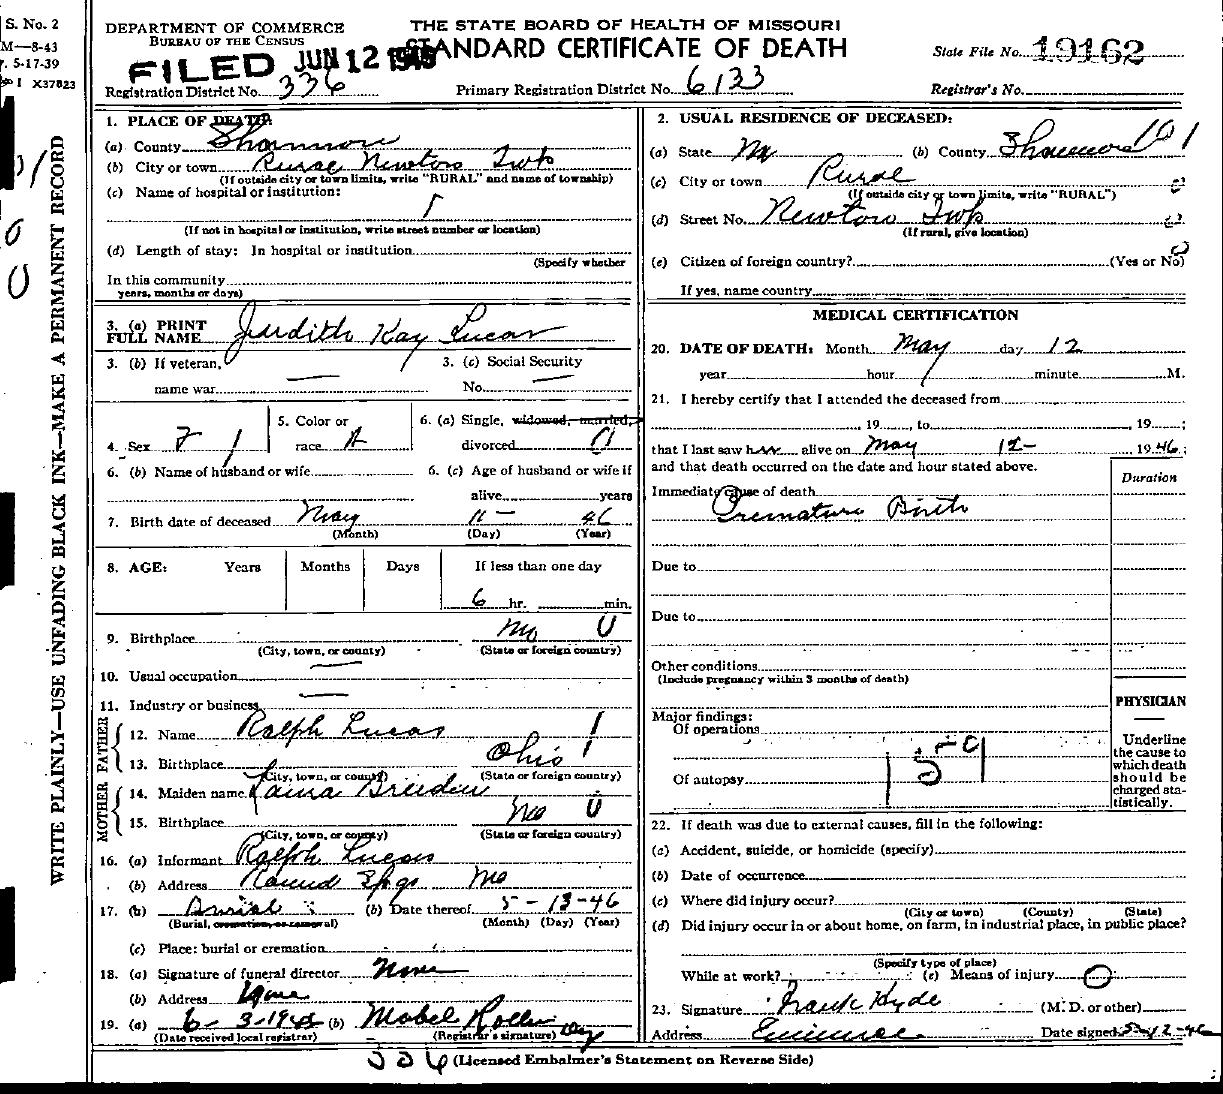 S. No. 2
M—8-43
5-17-39
I X37823
WRITE PLAINLY—USE UNFADING BLACK INK—MAKE A PERMANENT RECORD
DEPARTMENT OF COMMERCE
BUREAU OF THE CENSUS
THE STATE BOARD OF HEALTH OF MISSOURI
STANDARD CERTIFICATE OF DEATH
FILED JUN 12 1946
State File No. 19162
Registration District No. 336
Primary Registration District No. 6133
Registrar's No.
1. PLACE OF DEATH:
(a) County Shannon
(b) City or town Rural Newton Twp
(If outside city or town limits, write "RURAL" and name of township)
(c) Name of hospital or institution:
(If not in hospital or institution, write street number or location)
(d) Length of stay: In hospital or institution
(Specify whether
In this community
years, months or days)
3. (a) PRINT FULL NAME Judith Kay Lucas
3. (b) If veteran, name war —
3. (c) Social Security No. —
4. Sex F 1
5. Color or race
6. (a) Single, widowed, married, divorced
6. (b) Name of husband or wife
6. (c) Age of husband or wife if alive years
7. Birth date of deceased May 11 - 46
(Month) (Day) (Year)
8. AGE: Years Months Days If less than one day
6 hr. min.
9. Birthplace Mo 0
(City, town, or county) (State or foreign country)
10. Usual occupation —
11. Industry or business —
FATHER
12. Name Ralph Lucas
13. Birthplace Ohio 1
(City, town, or county) (State or foreign country)
MOTHER
14. Maiden name Laura Breeden
15. Birthplace Mo 0
(City, town, or county) (State or foreign country)
16. (a) Informant Ralph Lucas
(b) Address Round Spgs Mo
17. (a) Burial (b) Date thereof 5-13-46
(Burial, cremation, or removal) (Month) (Day) (Year)
(c) Place: burial or cremation
18. (a) Signature of funeral director None
(b) Address None
19. (a) 6-3-1946 (b) Mabel Roller
(Date received local registrar) (Registrar's signature)
336 (Licensed Embalmer's Statement on Reverse Side)
2. USUAL RESIDENCE OF DECEASED:
(a) State Mo (b) County Shannon 101
(c) City or town Rural
(If outside city or town limits, write "RURAL")
(d) Street No. Newton Twp
(If rural, give location)
(e) Citizen of foreign country? (Yes or No)
If yes, name country
MEDICAL CERTIFICATION
20. DATE OF DEATH: Month May day 12
year hour minute M.
21. I hereby certify that I attended the deceased from
19 , to , 19 ;
that I last saw her alive on May 12- 1946;
and that death occurred on the date and hour stated above.
Duration
Immediate cause of death
Premature Birth
Due to
Due to
Other conditions
(Include pregnancy within 3 months of death)
Major findings:
Of operations
159
Of autopsy
PHYSICIAN
Underline the cause to which death should be charged statistically.
22. If death was due to external causes, fill in the following:
(a) Accident, suicide, or homicide (specify)
(b) Date of occurrence
(c) Where did injury occur?
(City or town) (County) (State)
(d) Did injury occur in or about home, on farm, in industrial place, in public place?
(Specify type of place)
While at work? (e) Means of injury
23. Signature Frank Hyde (M. D. or other)
Address Eminence Date signed 5-12-46